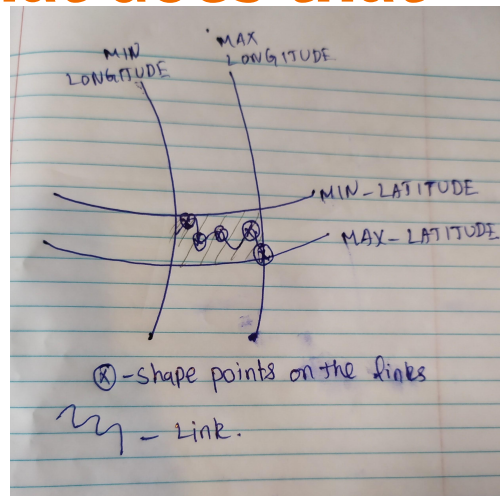 MIN
LONGITUDE
MAX
LONGITUDE
MIN-LATITUDE
MAX-LATITUDE
ⓧ-shape points on the links
- Link.